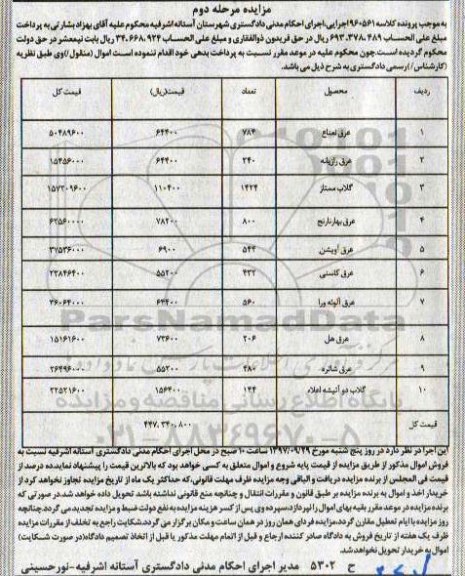 مزایده مرحله دوم
به موجب پرونده کلاسه ۹۶۰۵۶۱اجرایی،اجرای احکام مدنی دادگستری شهرستان آستانه اشرفیه محکوم علیه آقای بهزاد بشارتی به پرداخت
مبلغ علی الحساب ۶۹۳،۳۷۸،۴۸۹ ریال در حق فریدون ذوالفقاری و مبلغ علی الحساب ۳۴،۶۶۸،۹۲۴ ریال بابت نیمعشر در حق دولت
محکوم گردیده است.چون محکوم علیه در موعد مقرر نسبت به پرداخت بدهی خود اقدام ننموده است اموال (منقول)اوی طبق نظریه
(کارشناس/)رسمی دادگستری به شرح ذیل می باشد.
ردیف محصول تعداد قیمت(ریال) قیمت کل
۱ عرق نعناع ۷۸۴ ۶۴۴۰۰ ۵۰۴۸۹۶۰۰
۲ عرق رازیانه ۲۴۰ ۶۴۴۰۰ ۱۵۴۵۶۰۰۰
۳ گلاب ممتاز ۱۴۲۴ ۱۱۰۴۰۰ ۱۵۷۲۰۹۶۰۰
۴ عرق بهارنارنج ۸۰۰ ۷۸۲۰۰ ۶۲۵۶۰۰۰۰
۵ عرق آویشن ۵۴۴ ۶۹۰۰ ۳۷۵۳۶۰۰۰
۶ عرق کاسنی ۴۳۲ ۵۵۲۰۰ ۲۳۸۴۶۴۰۰
۷ عرق آلوئه ورا ۵۶۰ ۶۴۴۰۰ ۳۶۰۶۴۰۰۰
۸ عرق هل ۲۰۶ ۷۳۶۰۰ ۱۵۱۶۱۶۰۰
۹ عرق شاتره ۴۸۰ ۵۵۲۰۰ ۲۶۴۹۶۰۰۰
۱۰ گلاب دو آتیشه اعلاء ۱۴۴ ۱۵۶۴۰۰ ۲۲۵۲۱۶۰۰
قیمت کل ۴۴۷،۳۴۰،۸۰۰
این اجرا در نظر دارد در روز پنج شنبه مورخ ۱۳۹۷/۰۹/۲۹ ساعت ۱۰ صبح در محل اجرای احکام مدنی دادگستری آستانه اشرفیه نسبت به
فروش اموال مذکور از طریق مزایده از قیمت پایه شروع و اموال متعلق به کسی خواهد بود که بالاترین قیمت را پیشنهاد نماید.ده درصد از
قیمت فی المجلس از برنده مزایده دریافت و الباقی وجه مزایده ظرف مهلت قانونی،که حداکثر یک ماه از تاریخ مزایده تجاوز نخواهد کرد از
خریدار اخذ و اموال به برنده مزایده بر طبق قانون و مقررات انتقال و چنانچه منع قانونی نداشته باشد تحویل داده خواهد شد.در صورتی که
برنده مزایده در موعد مقرر بقیه بهای اموال را نپردازد،سپرده وی پس از کسر هزینه مزایده به نفع دولت ضبط و مزایده تجدید می گردد.چنانچه
روز مزایده با ایام تعطیل مقارن گردد،مزایده فردای همان روز در همان ساعت و مکان برگزار می گردد.شکایت راجع به تخلف از مقررات مزایده
ظرف یک هفته از تاریخ فروش به دادگاه صادر کننده ارجاع و قبل از اتمام مهلت مذکور یا قبل از اتخاذ تصمیم دادگاه(در صورت شکایت)
اموال به خریدار تحویل نخواهد شد.
ح ۵۳۰۲ مدیر اجرای احکام مدنی دادگستری آستانه اشرفیه-نورحسینی
ParsNamadData
پایگاه اطلاع رسانی مناقصه و مزایده
۰۲۱-۸۸۳۴۹۶۷۰-۵